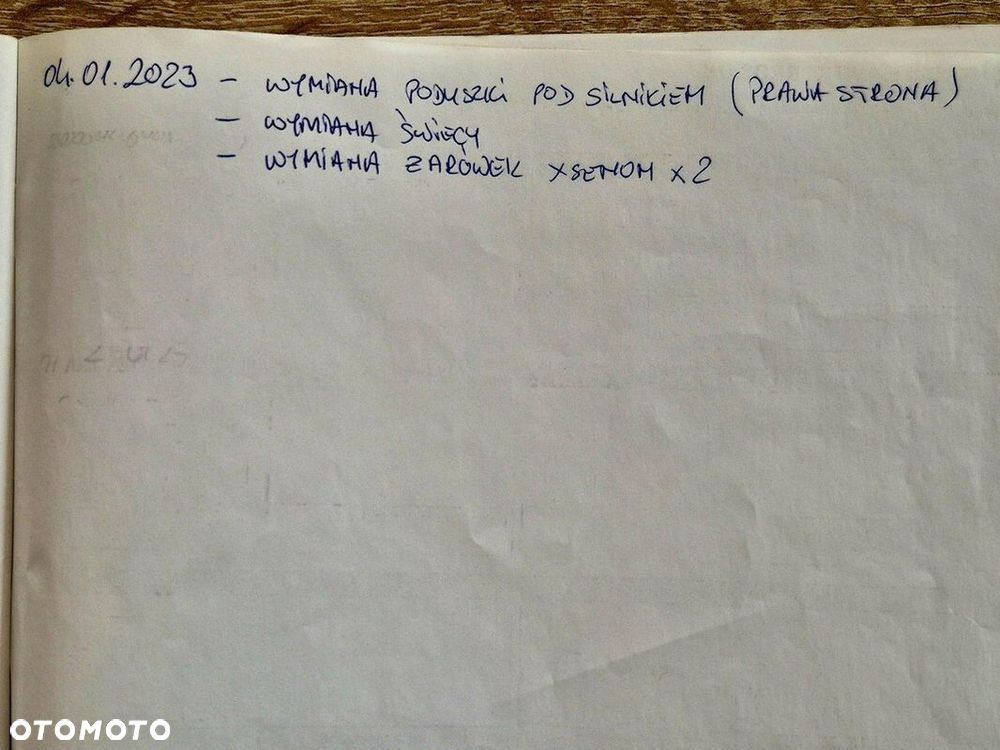 04.01.2023 - WYMIANA PODUSZKI POD SILNIKIEM (PRAWA STRONA)
- WYMIANA ŚWIECY
- WYMIANA ŻARÓWEK XSENON x2
OTOMOTO